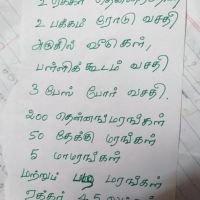 2 பக்கம் ரோடு வசதி
அருகில் வீடுகள்,
பள்ளிக் கூடம் வசதி
3 பேஸ் போர் வசதி.
200 தென்னங்மரங்கள்
50 தேக்கு மரங்கள்
5 மாமரங்கள்
மற்றும் மரங்கள்